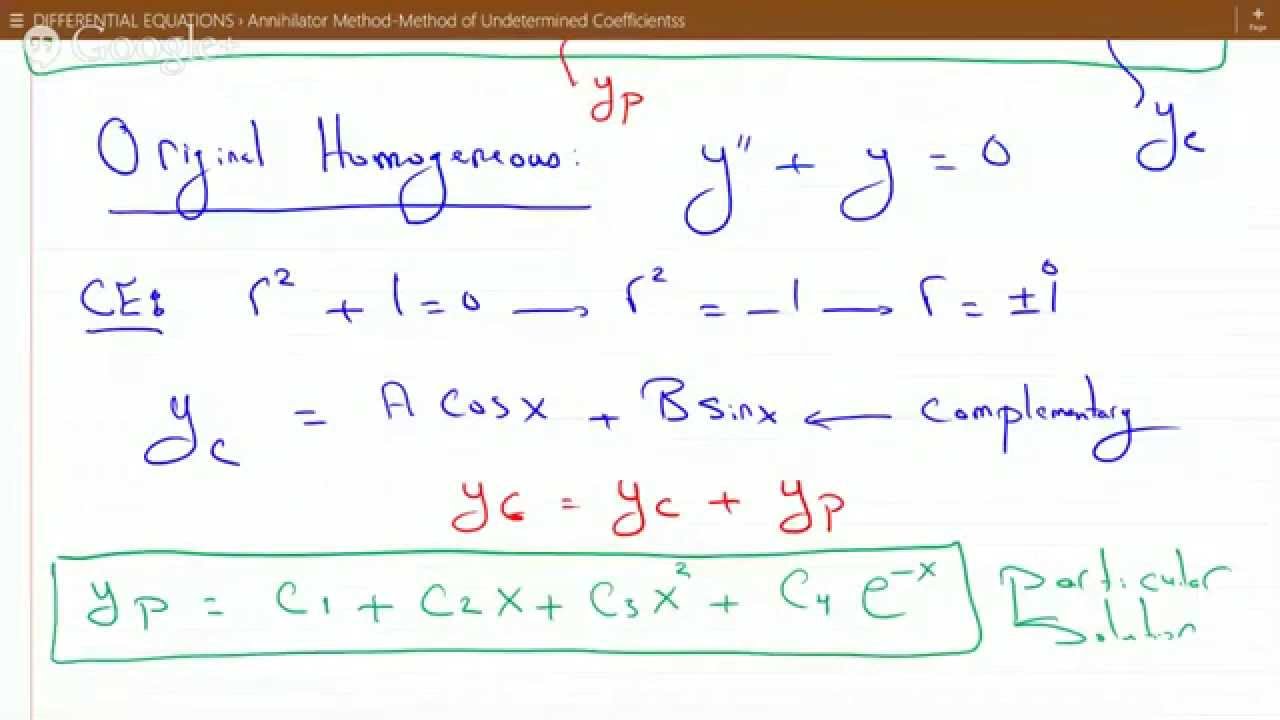 ☰ DIFFERENTIAL EQUATIONS › Annihilator Method-Method of Undetermined Coefficientss
+ Page
Google+
yp
yc
Original Homogeneous: y'' + y = 0
CE: r² + 1 = 0 → r² = -1 → r = ±i
yc = A cosx + B sinx ← Complementary
yG = yc + yp
yp = C1 + C2 x + C3 x² + C4 e^-x
Particular
Solution